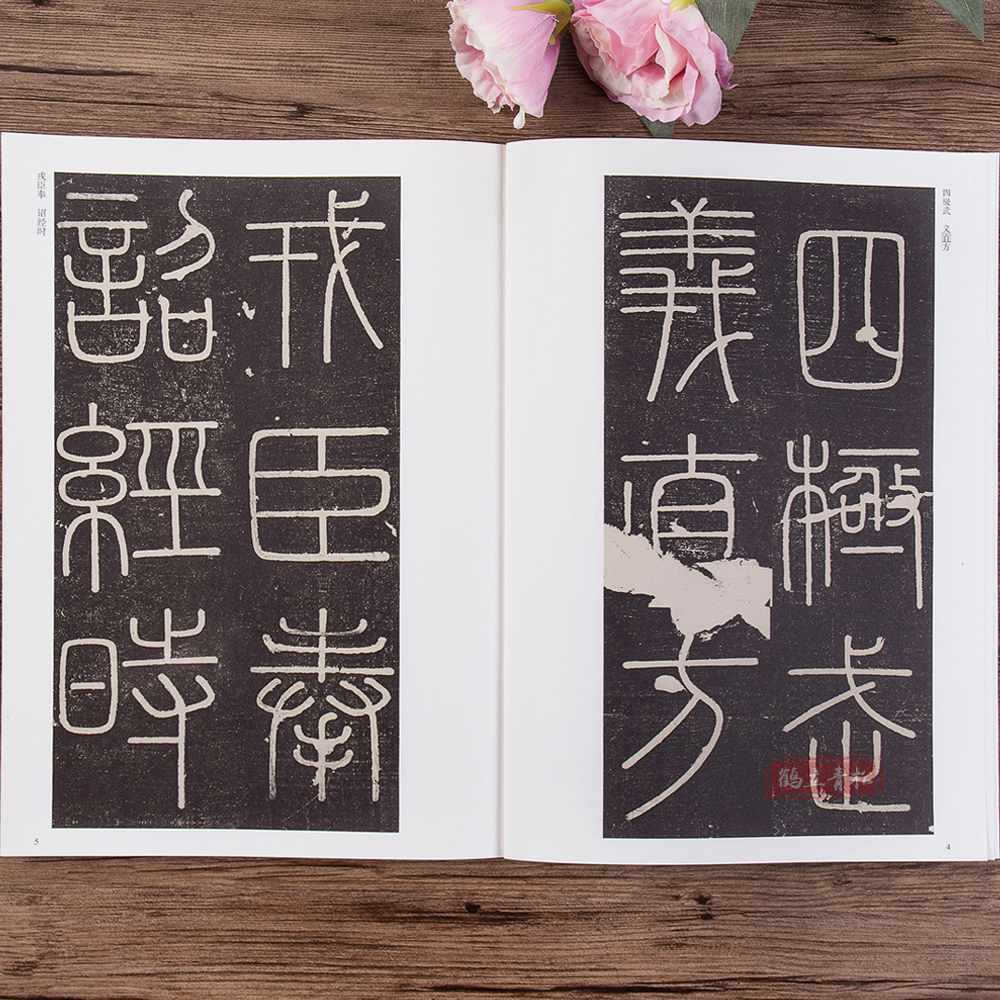 四极武 义直方
四極武
義直方
4
戎臣奉 诏经时
戎臣奉
詔經時
5
鶴立青松